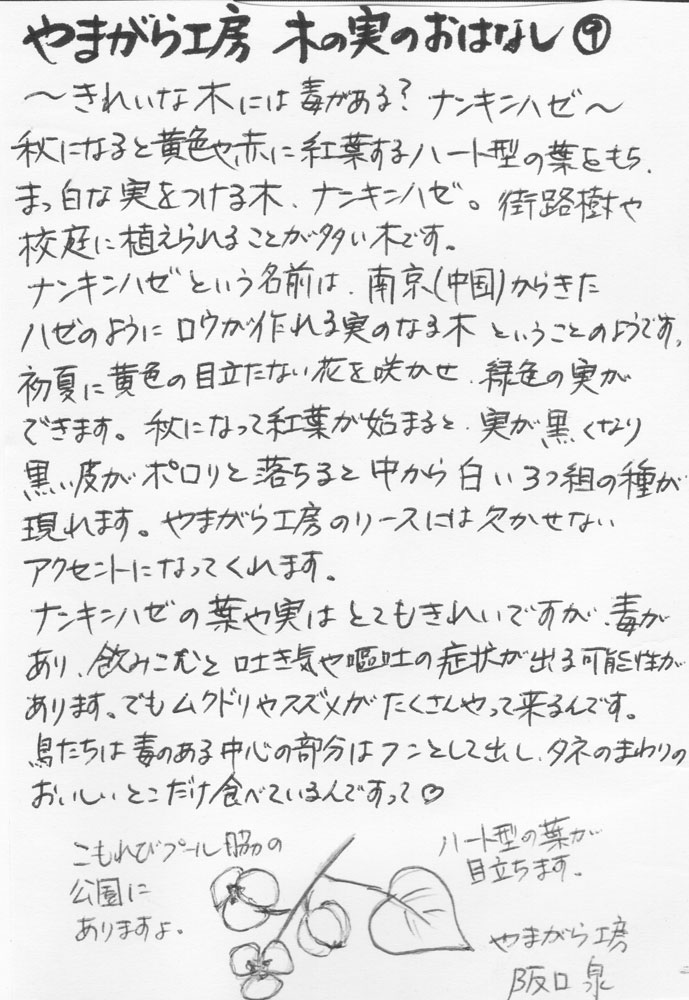 やまがら工房 木の実のおはなし⑨
～きれいな木には毒がある? ナンキンハゼ～
秋になると黄色や赤に紅葉するハート型の葉をもち、
まっ白な実をつける木、ナンキンハゼ。街路樹や
校庭に植えられることが多い木です。
ナンキンハゼという名前は、南京(中国)からきた
ハゼのようにロウが作れる実のなる木 ということのようです。
初夏に黄色の目立たない花を咲かせ、緑色の実が
できます。秋になって紅葉が始まると、実が黒くなり
黒い皮がポロリと落ちると中から白い3つ組の種が
現れます。やまがら工房のリースには欠かせない
アクセントになってくれます。
ナンキンハゼの葉や実はとてもきれいですが、毒が
あり、飲みこむと吐き気や嘔吐の症状が出る可能性が
あります。でもムクドリやスズメがたくさんやって来るんです。
鳥たちは毒のある中心の部分はフンとして出し、タネのまわりの
おいしいとこだけ食べているんですって♡
こもれびプール脇の
公園に
ありますよ。
ハート型の葉が
目立ちます。
やまがら工房
阪口 泉